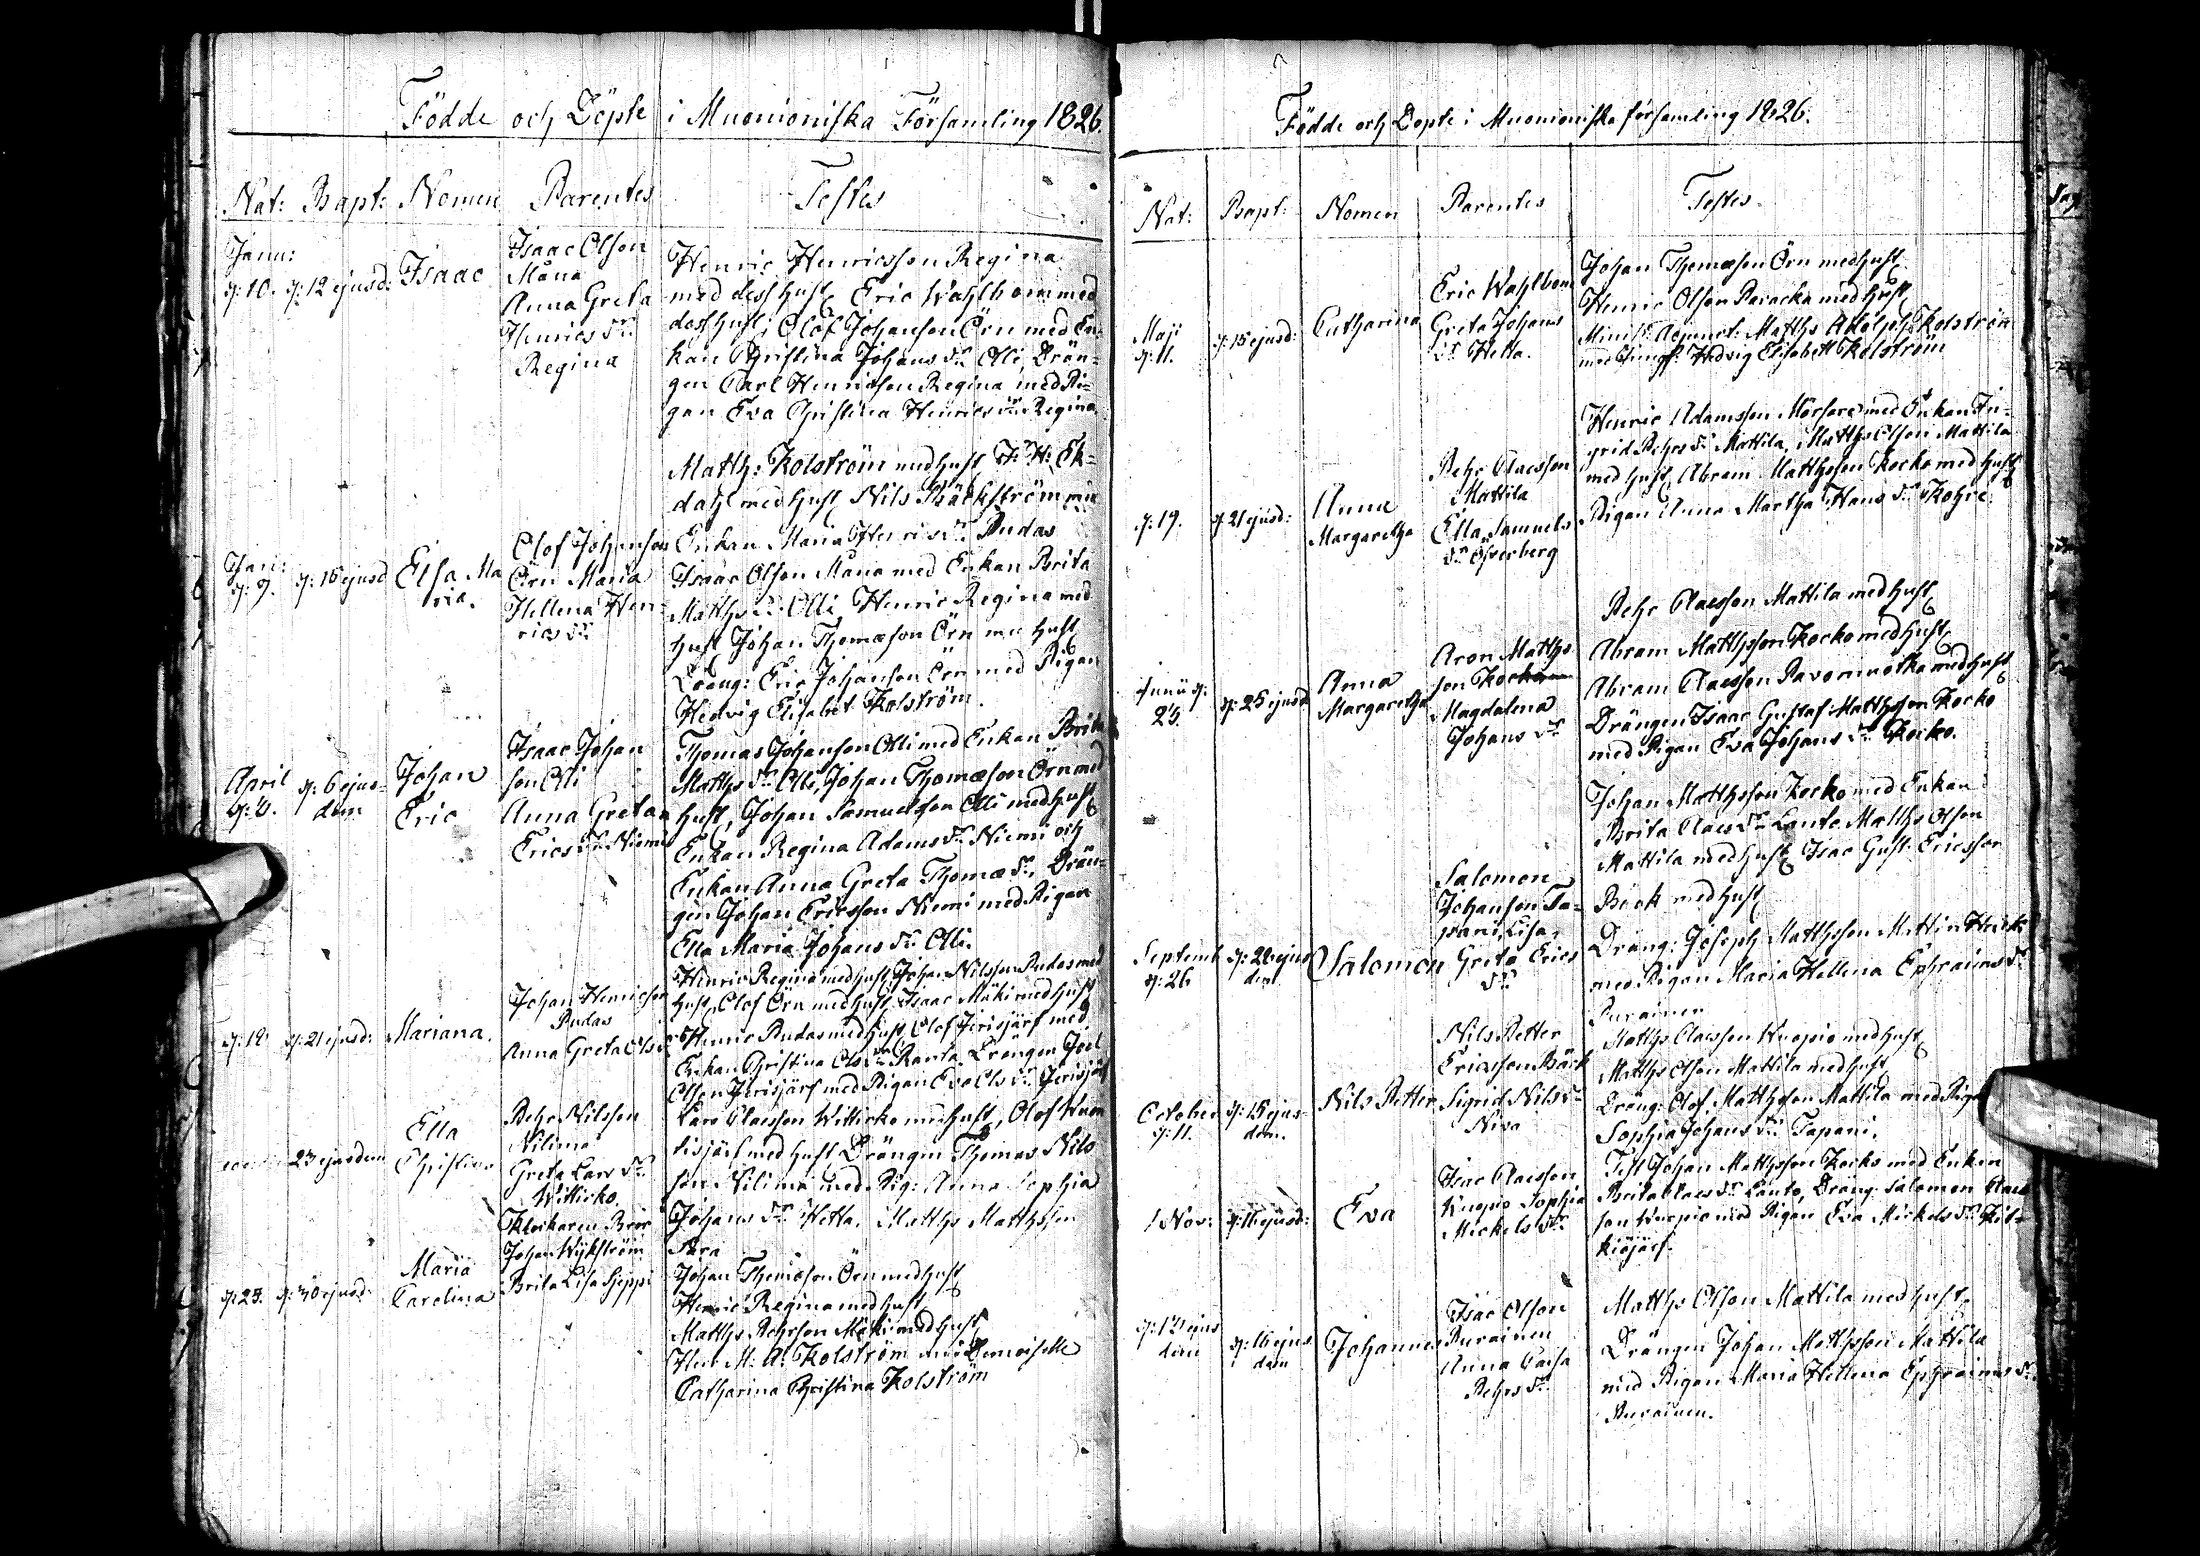 Födde och Döpte i Muonioniska Församling 1826.
Nat: Bapt: Nomen Parentes Testes
Janu:
d: 10. d: 12 ejusd: Isaac
Isaac Olson
Måna
Anna Greta
Henrics dr
Regina
Henric Henricsson Regina
med dess hust, Eric Wahlbom med
dess hust, Olof Johanson Örn med En-
kan Christina Johans dr Olli, Drän-
gen Carl Henricson Regina med Pi-
gan Eva Christina Henrics dr Regina.
Janu:
d: 9. d: 16 ejusd Elsa Ma
ria.
Olof Johanson
Örn Maria
Hellena Hen-
rics dr
Math: Kolström med hust, F: H: Ek-
dahl med hust Nils Bäckström med
Enkan Maria Henrics dr Rudas
Isaac Olson Måna med Enkan Brita
Matths dr Olli, Henric Regina med
hust Johan Thomæson Örn med hust
Dräng: Eric Johanson Örn med Pigan
Hedvig Elisabet Kolström.
April
d: 3. d: 6 ejus-
dem
Johan
Eric
Isaac Johan
son Olli
Anna Greta
Erics dr Niemi
Thomas Johanson Olli med Enkan Brita
Matths dr Olli, Johan Thomæson Örn med
hust, Johan Samuelson Olli med hust
Enkan Regina Adams dr Niemi och
Enkan Anna Greta Thomæ dr, Drän-
gen Johan Ericsson Niemi med Pigan
Ella Maria Johans dr Olli.
d: 18 d: 21 ejusd: Mariana.
Johan Henricson
Rudas
Anna Greta Ols dr
Henric Regina med hust, Johan Nilsson Rudas med
hust, Olof Örn med hust, Isaac Mäki med hust
Henric Rudas med hust, Olof Jerisjärf med
Enkan Christina Ols dr Ranta Drängen Joel
Olson Jerisjärf med Pigan Eva Ols dr Jerisjärf
23 ejusdem
Ella
Christina
Pehr Nilsson
Nilima
Greta Lars dr
Witticko
Lars Claesson Witticko med hust, Olof Wuon
tisjärf med hust Drängen Thomas Nils
son Nilima med Pig: Anna Sophia
Johans dr Hetta. Matths Matthsson
d: 23. d: 30 ejusd:
Maria
Carolina
Klockaren
Johan Wykström
Brita Lisa Sjeppi
Johan Thomæson Örn med hust
Henric Regina med hust
Matths Pehrson Mäki med hust
Herr M. A. Kolström med Demoiselle
Catharina Christina Kolström
Födde och Döpte i Muonioniska församling 1826.
Nat: Bapt: Nomen Parentes Testes
Maji
d: 11. d: 15 ejusd: Catharina
Eric Wahlbom
Greta Johans
dr Hetta.
Johan Thomæson Örn med hust
Henric Olson med hust
Minist: Adjunct: Matths Adolph Kolström
med Hedvig Elisabett Kolström
d: 19. d: 21 ejusd:
Anna
Margaretha
Pehr Claesson
Mattila
Ella Samuels
dr Österberg
Henric Adamsson med Enkan In-
grid Pehrs dr Mattila, Matths Olson Mattila
med hust, Abram Matthsson Kocko med hust
Pigan Anna Martha Hans dr Kohre.
Junii d:
25. d: 25 ejusd
Anna
Margaretha
Aron Matths
son Kocko
Magdalena
Johans dr
Pehr Claesson Mattila med hust
Abram Matthsson Kocko med hust
Abram Claesson Pavomuotka med hust
Drängen Isaac Gustaf Matthsson Kocko
med Pigan Eva Johans dr Kocko.
Septemb
d: 26 d: 28 ejus
dem
Salomon
Salomon
Johanson Ta-
pani, Lisa
Greta Erics
dr
Johan Matthsson Kocko med Enkan
Brita Claes dr Lanto. Matths Olson
Mattila med hust, Isac Gust: Ericsson
Bäck med hust
Dräng: Joseph Matthsson
med Pigan Maria Hellena Ephraims dr
Purainen
October
d: 11. d: 15 ejus-
dem.
Nils Petter
Nils Petter
Ericsson Bäck
Sigrid Nils dr
Niva
Matths Claesson Kuopio med hust
Matths Olson Mattila med hust
Dräng: Olof Matthson Mattila med Piga
Sophia Johans dr Tapani.
1 Nov: d: 16 ejusd: Eva
Isac Claesson
Kuopio Sophia
Mickels dr
Test Johan Matthsson Kocko med Enkan
Brita Claes dr Lanto, Dräng: Salomon Claes
son Kuopio med Pigan Eva Mickels dr Kit-
kiöjärf.
d: 13 ejus
dem
d: 16 ejus
dem
Johannes
Isac Olson
Purainen
Anna Caisa
Pehrs dr
Matths Olson Mattila med hust,
Drängen Johan Matthsson Mattila
med Pigan Maria Hellena Ephraims dr
Purainen.